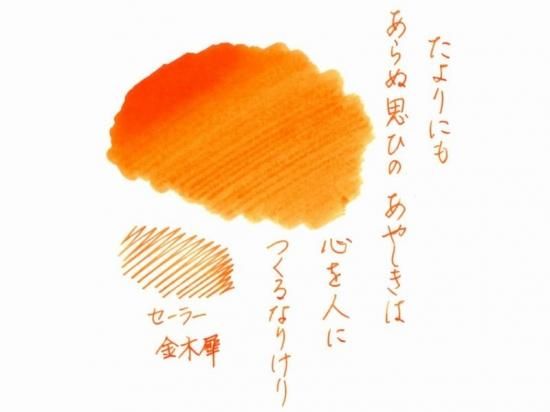 たよりにも
あらぬ思ひの あやしきは
心を人に
つくるなりけり
セーラー
金木犀